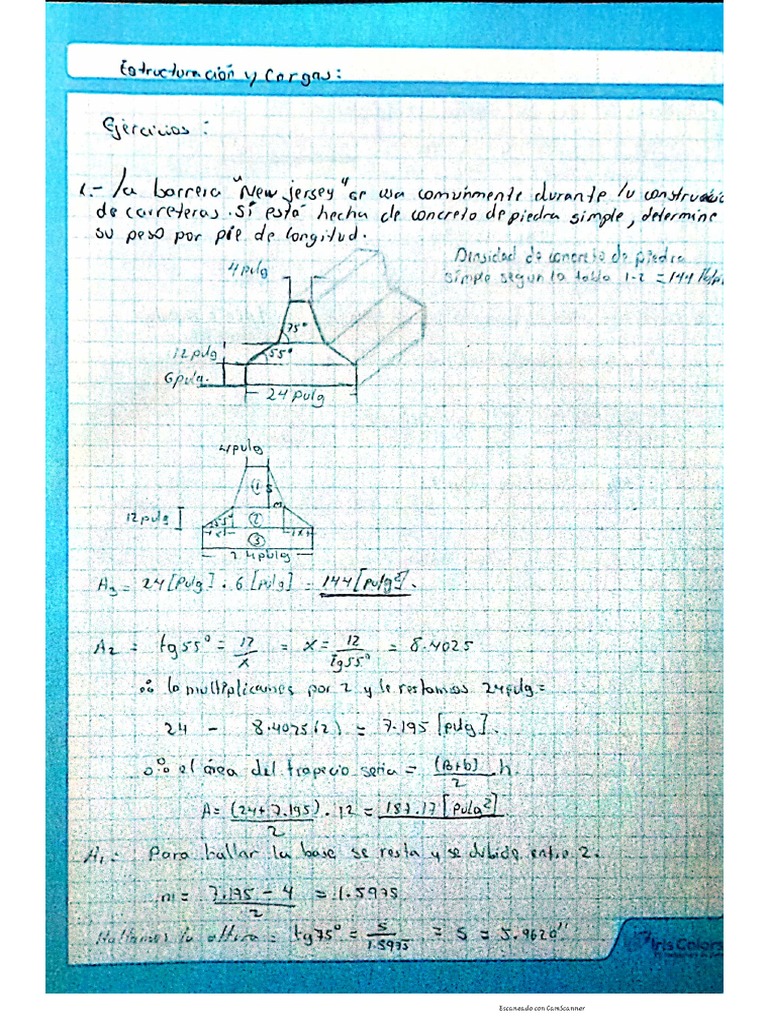 Estructuración y Cargas:
Ejercicios:
1.- La barrera "New jersey" se usa comunmente durante la construcció
de carreteras. Sí está hecha de concreto de piedra simple, determine
su peso por pie de longitud.
Densidad de concreto de piedra
simple segun la tabla 1-2 = 144 lb/pi
4 pulg
75°
12 pulg
55°
6 pulg.
24 pulg
4 pulg
① S
m
12 pulg
55°
②
x
x
③
24 pulg
A3 = 24 [pulg] . 6 [pulg] = 144 [pulg²].
A2 = tg 55° = 12/x = x = 12/tg55° = 8.4025
∴ lo multiplicamos por 2 y le restamos 24 pulg =
24 - 8.4025(2) = 7.195 [pulg].
∴ el área del trapecio seria = (B+b)/2 . h.
A = (24+7.195)/2 . 12 = 187.17 [pulg²]
A1 = Para hallar la base se resta y se dibide entre 2.
m = 7.195 - 4/2 = 1.5975
Hallamos la altura = tg 75° = S/1.5975 = S = 5.9620"
Iris Colors
Escaneado con CamScanner